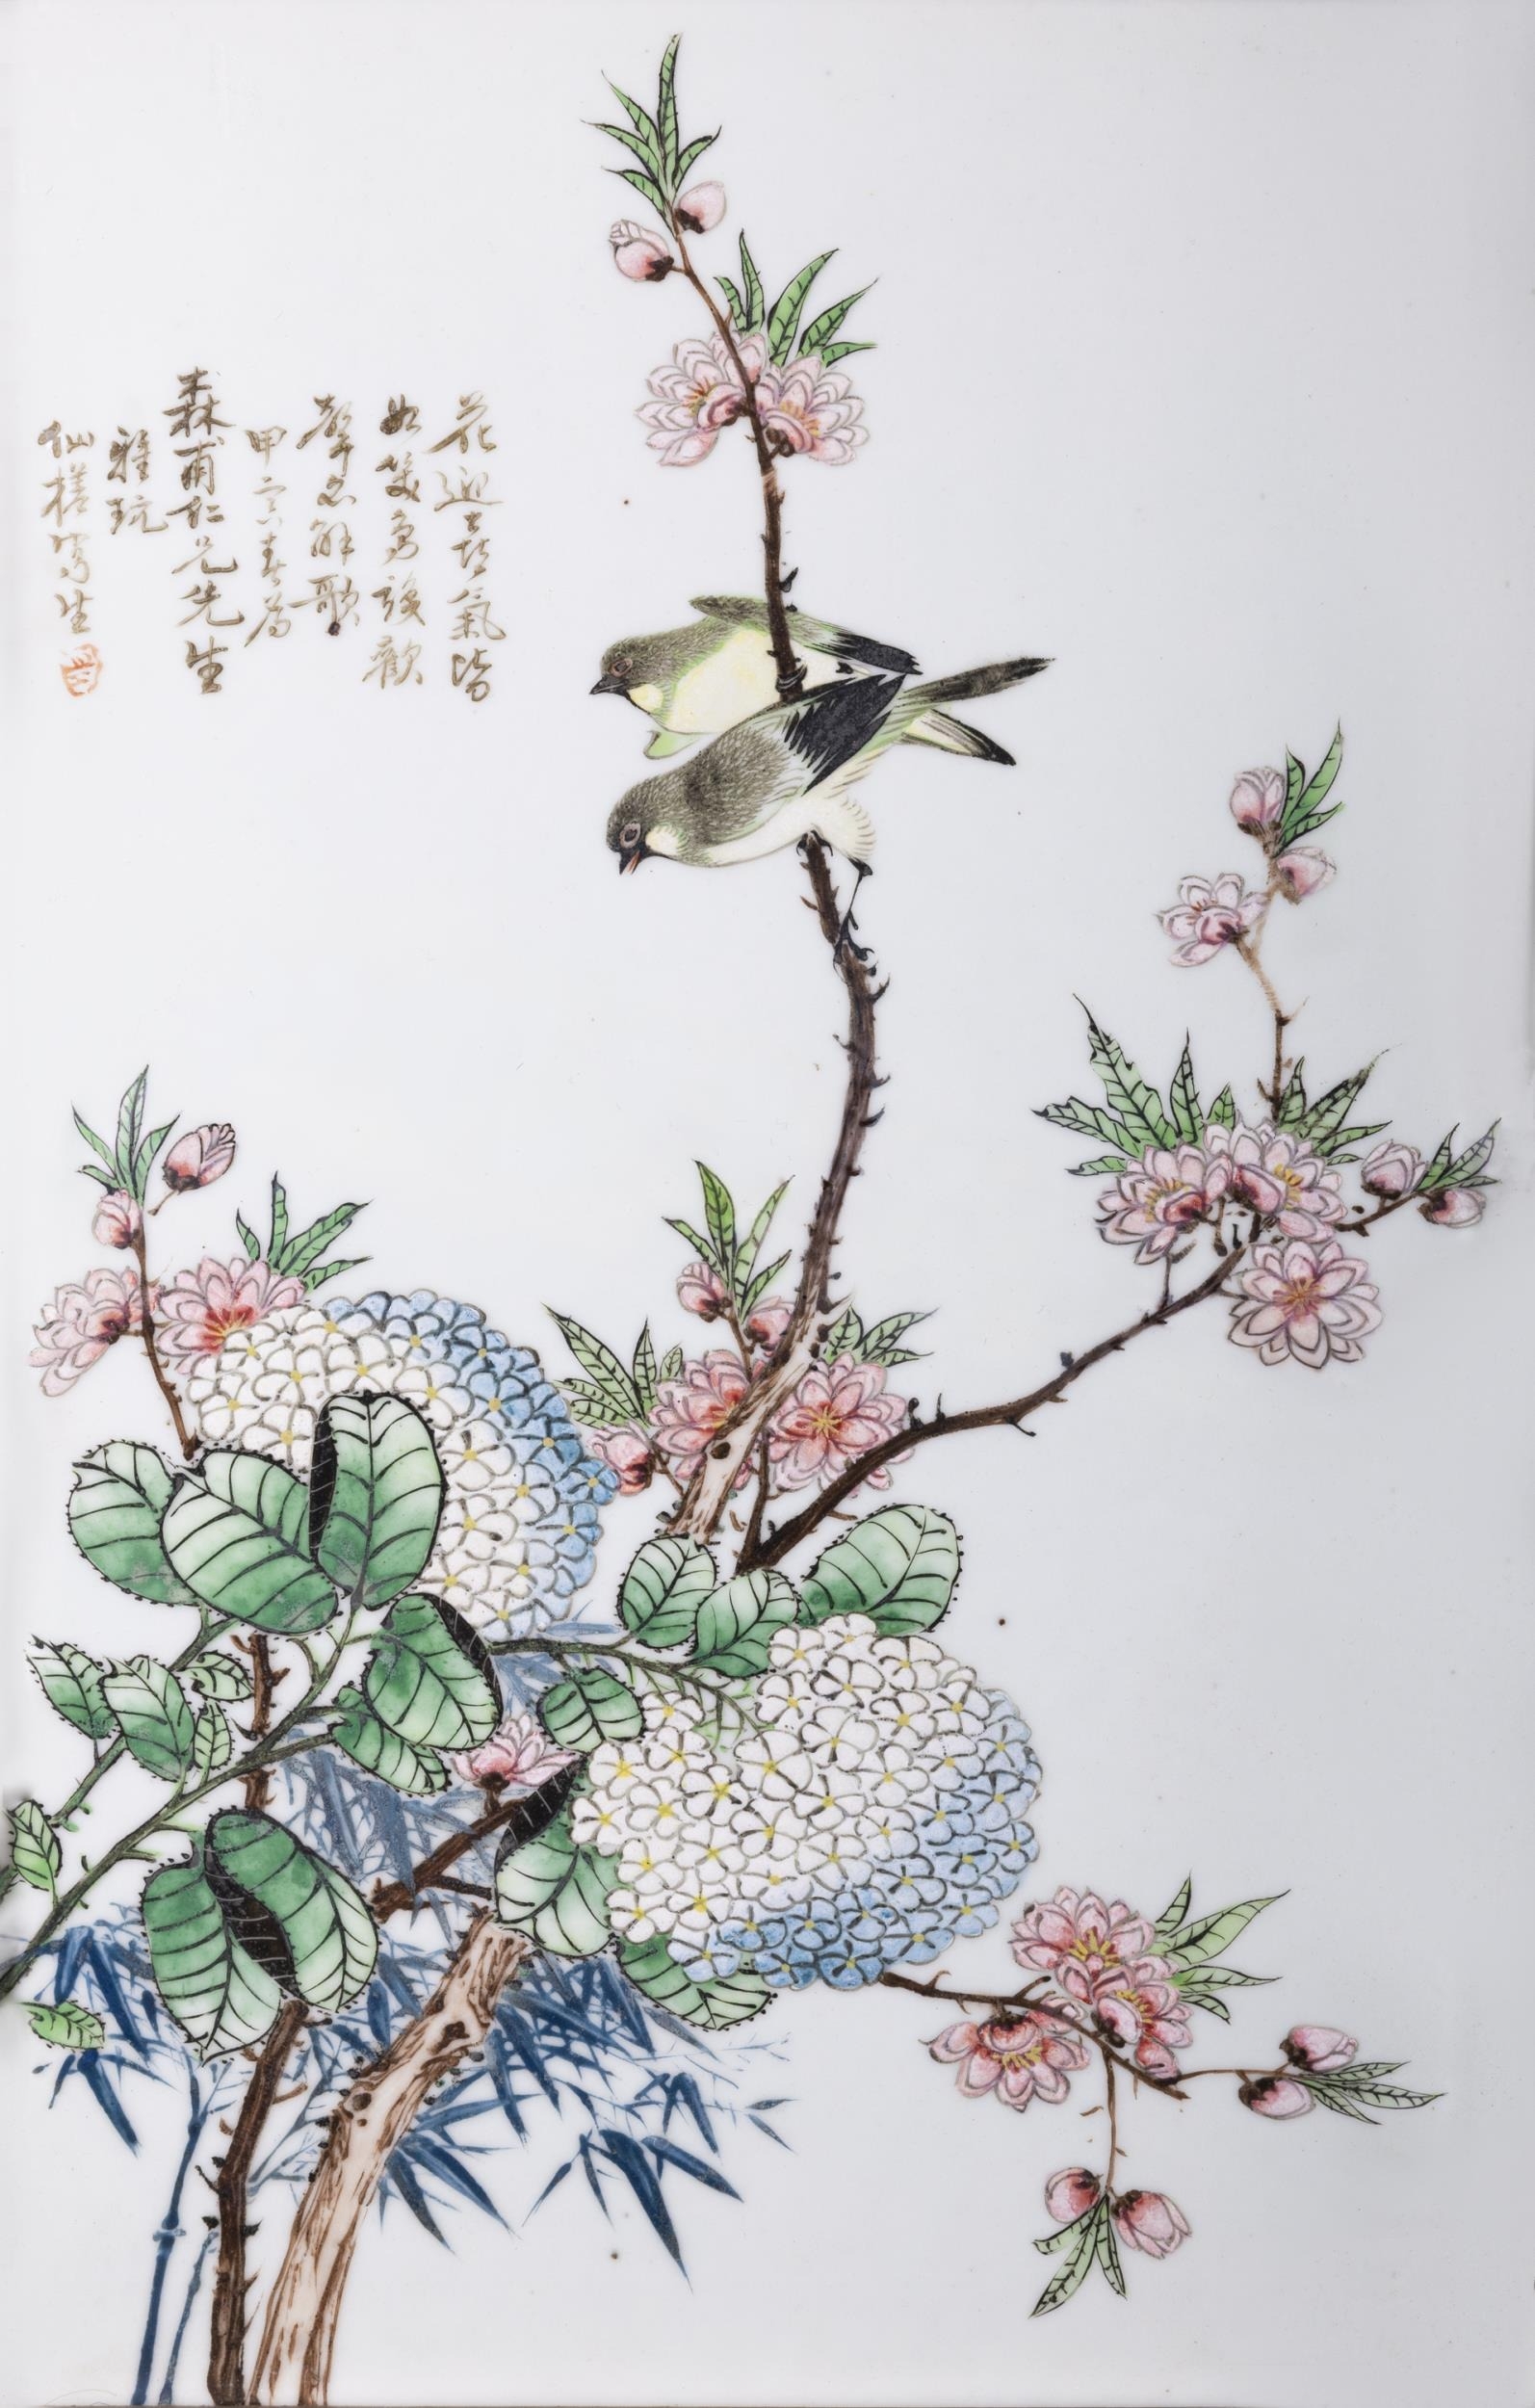 花迎喜氣皆
如笑鳥識歡
聲亦解歌
甲寅春為
森甫仁兄先生
雅玩
仙槎寫生